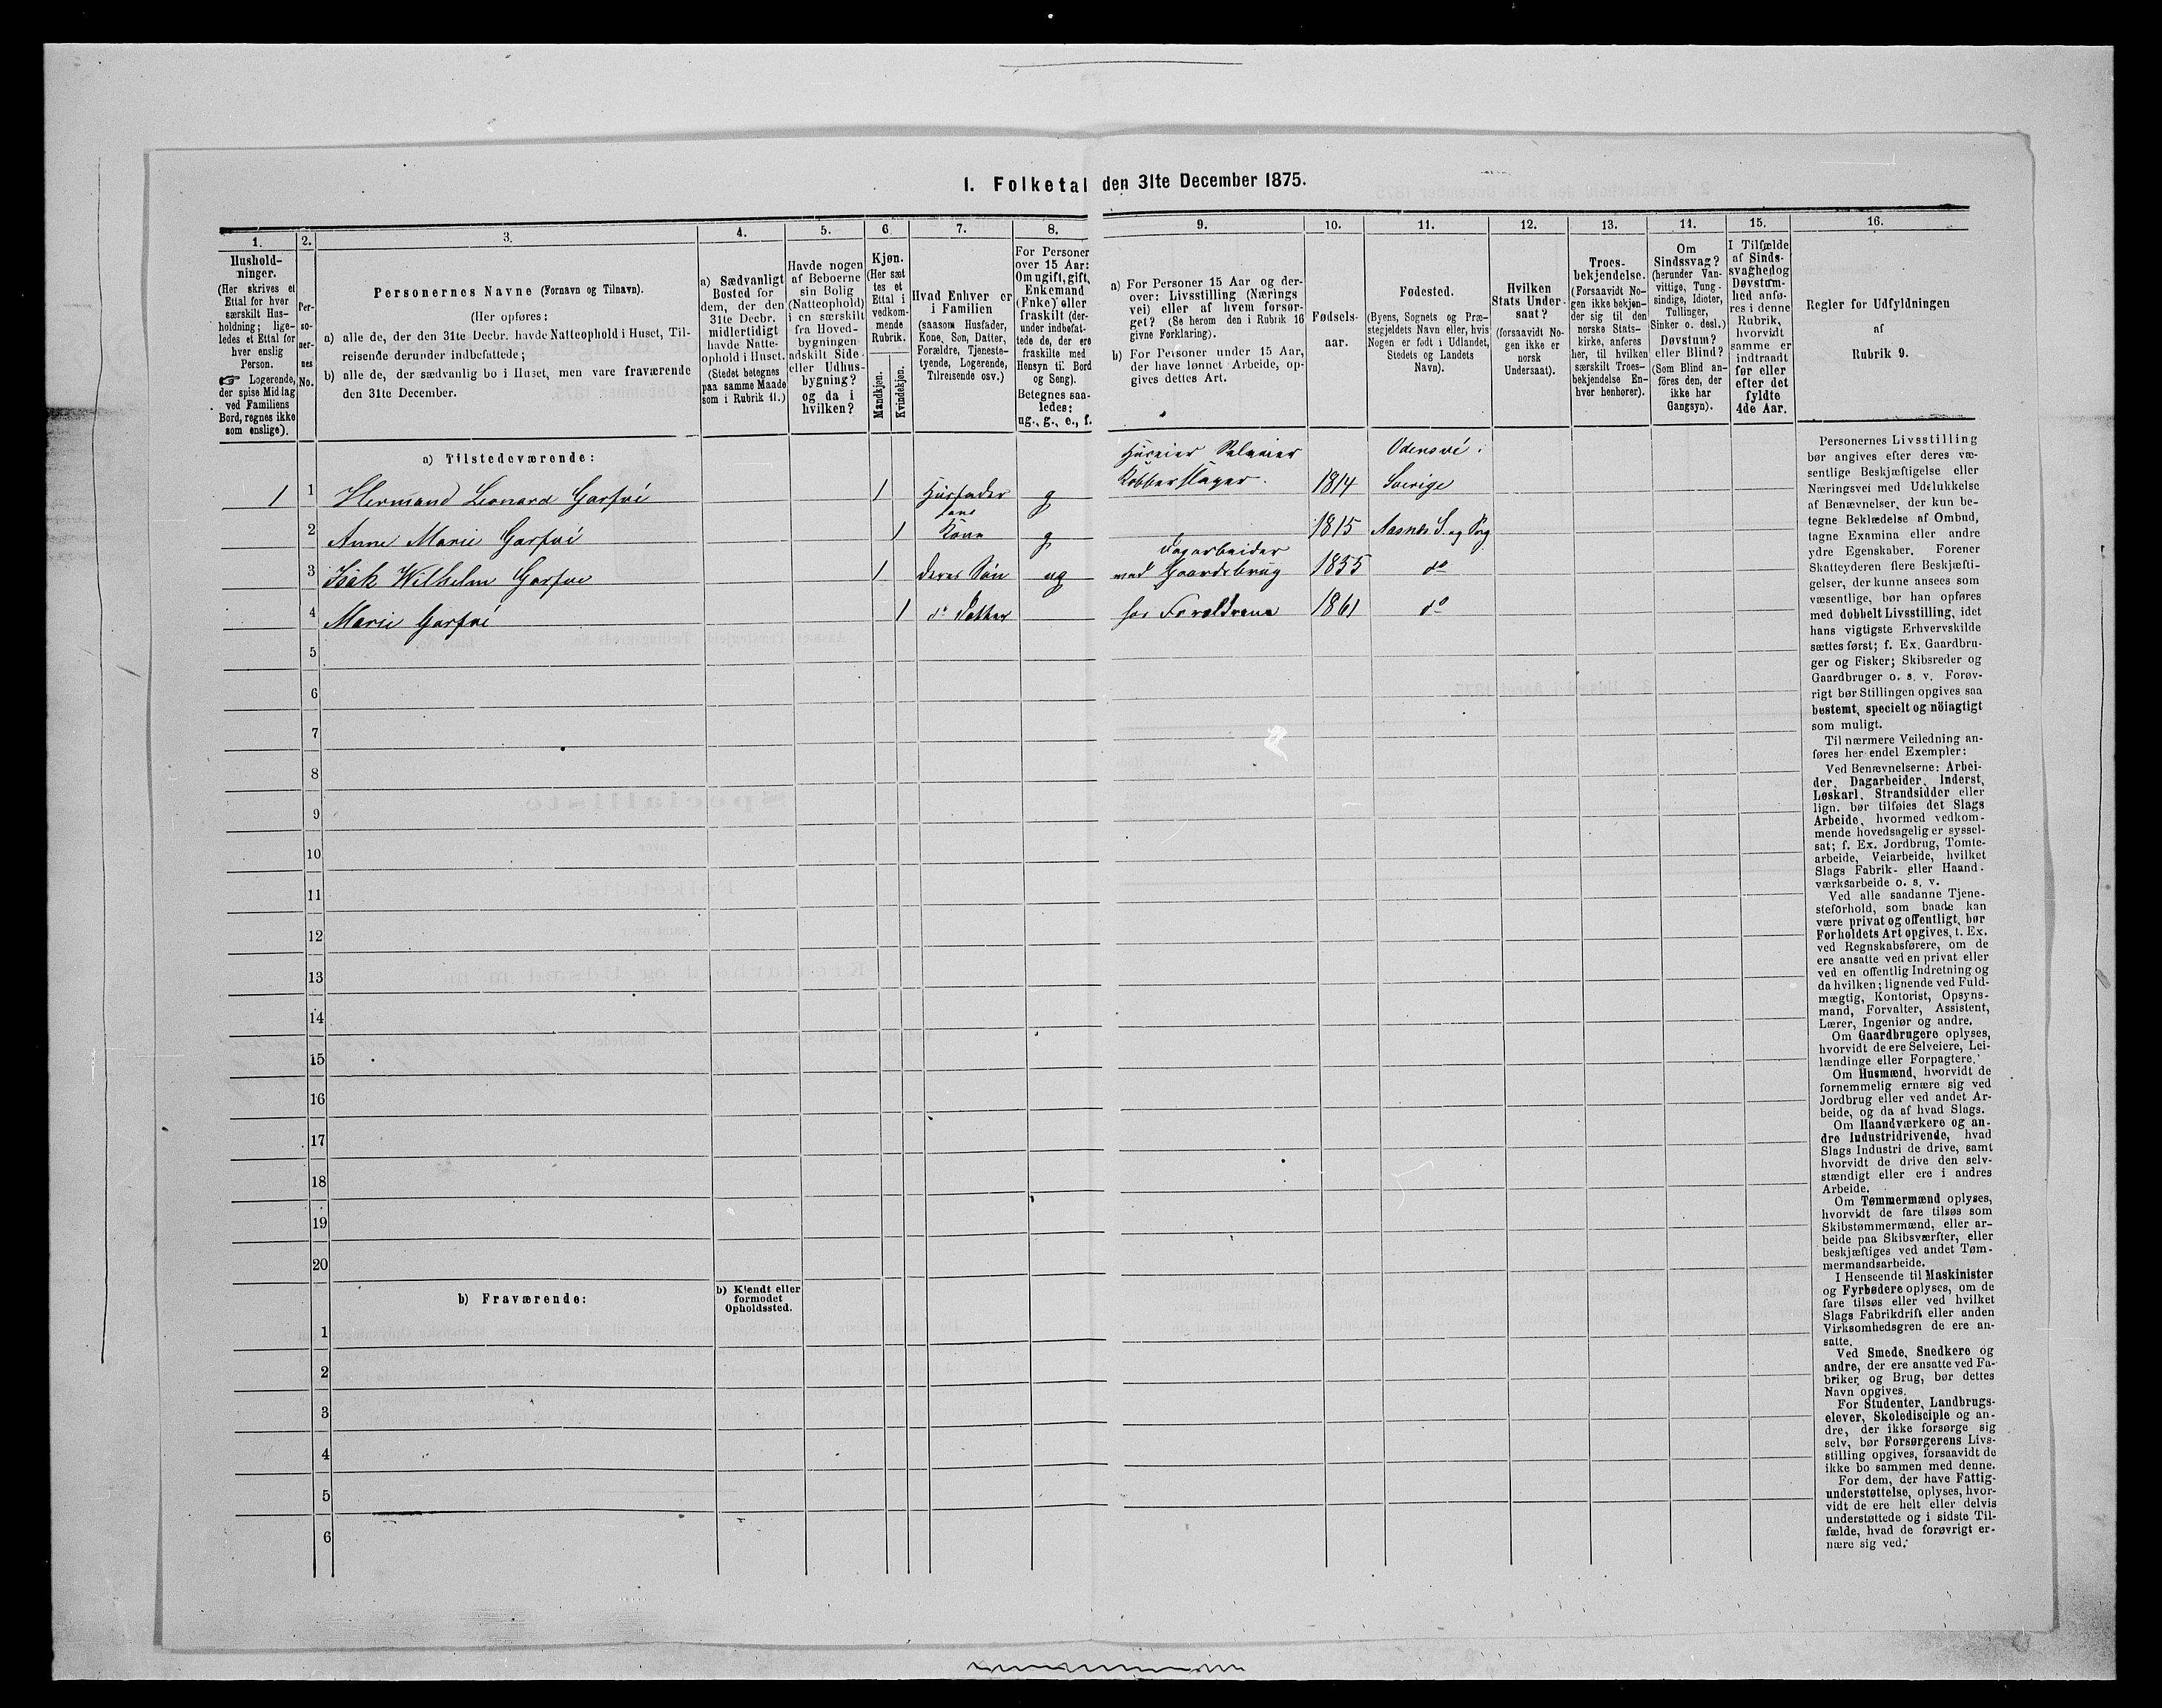 I. Folketal den 31te December 1875.
1.
Hushold-
ninger.
(Her skrives et
Ettal for hver
særskilt Hus-
holdning; lige-
ledes et Ettal for
hver enslig
Person.
☞ Logerende,
der spise Middag
ved Familiens
Bord, regnes ikke
som enslige).
2.
Per-
so-
ner-
nes
No.
3.
Personernes Navne (Fornavn og Tilnavn).
(Her opføres:
a) alle de, der den 31te Decbr. havde Natteophold i Huset, Til-
reisende derunder indbefattede;
b) alle de, der sædvanlig bo i Huset, men vare fraværende
den 31te December.
4.
a) Sædvanligt
Bosted for
dem, der den
31te Decbr.
midlertidigt
havde Natte-
ophold i Huset.
(Stedet betegnes
paa samme Maade
som i Rubrik 11.)
5.
Havde nogen
af Beboerne
sin Bolig
(Natteophold)
i en særskilt
fra Hoved-
bygningen
adskilt Side-
eller Udhus-
bygning?
og da i
hvilken?
6.
Kjøn.
(Her sæt
tes et
Ettal i
vedkom-
mende
Rubrik.
Mandkjøn.
Kvindekjøn.
7.
Hvad Enhver er
i Familien
(saasom Husfader,
Kone, Søn, Datter,
Forældre, Tjeneste-
tyende, Logerende,
Tilreisende osv.)
8.
For Personer
over 15 Aar:
Om ugift, gift,
Enkemand
(Enke) eller
fraskilt (der-
under indbefat-
tede de, der ere
fraskilte med
Hensyn til Bord
og Seng).
Betegnes saa-
ledes:
ug., g., e., f.
9.
a) For Personer 15 Aar og der-
over: Livsstilling (Nærings
vei) eller af hvem forsør-
get? (Se herom den i Rubrik 16
givne Forklaring).
b) For Personer under 15 Aar,
der have lønnet Arbeide, op-
gives dettes Art.
10.
Fødsels-
aar.
11.
Fødested.
(Byens, Sognets og Præ-
stegjeldets Navn eller, hvis
Nogen er født i Udlandet,
Stedets og Landets
Navn).
12.
Hvilken
Stats Under-
saat?
(forsaavidt No-
gen ikke er
norsk
Undersaat).
13.
Troes-
bekjendelse.
(Forsaavidt No-
gen ikke bekjen-
der sig til den
norske Stats-
kirke, anføres
her, til hvilken
særskilt Troes-
bekjendelse En-
hver henhører).
14.
Om
Sindssvag?
(herunder Van-
vittige, Tung-
sindige, Idioter,
Tullinger,
Sinker o. desl.)
Døvstum?
eller Blind?
(Som Blind an-
føres den, der
ikke har
Gangsyn).
15.
I Tilfælde
af Sinds-
svaghed og
Døvstum-
hed anfø-
res i denne
Rubrik,
hvorvidt
samme er
indtraadt
før eller
efter det
fyldte
4de Aar.
16.
Regler for Udfyldningen
af
Rubrik 9.
a) Tilstedeværende:
1 1 Hermand Leonard Garfvé 1 Husfader g Huseier Selveier Kobberslager. 1814 Odensvi i Sverige
2 Anne Marie Garfvé 1 Kone g 1815 Aasnes S. og Prg
3 Isak Wilhelm Garfve 1 deres Søn ug Dagarbeider med Gaardsbrug 1855 do
4 Marie Garfvé 1 do Datter hos Forældrene 1861 do
5
6
7
8
9
10
11
12
13
14
15
16
17
18
19
20
b) Fraværende:
b) Kjendt eller
formodet
Opholdssted.
1
2
3
4
5
6
Personernes Livsstilling
bør angives efter deres væ-
sentlige Beskjæftigelse eller
Næringsvei med Udelukkelse
af Benævnelser, der kun be-
tegne Beklædelse af Ombud,
tagne Examina eller andre
ydre Egenskaber. Forener
Skatteyderen flere Beskjæfti-
gelser, der kunne ansees som
væsentlige, bør han opføres
med dobbelt Livsstilling, idet
hans vigtigste Erhvervskilde
sættes først; f. Ex. Gaardbru-
ger og Fisker; Skibsreder og
Gaardbruger o. s. v. Forøv-
rigt bør Stillingen opgives saa
bestemt, specielt og nöiagtigt
som muligt.
Til nærmere Veiledning an-
føres her endel Exempler:
Ved Benævnelserne: Arbei-
der, Dagarbeider, Inderst,
Løskarl, Strandsidder eller
lign. bør tilføies det Slags
Arbeide, hvormed vedkom-
mende hovedsagelig er syssel-
sat; f. Ex. Jordbrug, Tomte-
arbeide, Veiarbeide, hvilket
Slags Fabrik- eller Haand-
værksarbeide o. s. v.
Ved alle saadanne Tjene-
steforhold, som baade kan
være privat og offentligt, bør
Forholdets Art opgives, t. Ex.
ved Regnskabsførere, om de
ere ansatte ved en privat eller
ved en offentlig Indretning og
da hvilken; lignende ved Fuld-
mægtig, Kontorist, Opsyns-
mand, Forvalter, Assistent,
Lærer, Ingeniør og andre.
Om Gaardbrugere oplyses,
hvorvidt de ere Selveiere, Lei-
lændinge eller Forpagtere.
Om Husmænd, hvorvidt de
fornemmelig ernære sig ved
Jordbrug eller ved andet Ar-
beide, og da af hvad Slags.
Om Haandværkere og an-
dre Industridrivende, hvad
Slags Industri de drive, samt
hvorvidt de drive den selv-
stændigt eller ere i andres
Arbeide.
Om Tømmermænd oplyses,
hvorvidt de fare tilsøs som
Skibstømmermænd, eller ar-
beide paa Skibsværfter, eller
beskjæftiges ved andet Tøm-
mermandsarbeide.
I Henseende til Maskinister
og Fyrbødere oplyses, om de
fare tilsøs eller ved hvilket
Slags Fabrikdrift eller anden
Virksomhedsgren de ere an-
satte.
Ved Smede, Snedkere og
andre, der ere ansatte ved Fa-
briker og Brug, bør dettes
Navn opgives.
For Studenter, Landbrugs-
elever, Skoledisciple og an-
dre, der ikke forsørge sig
selv, bør Forsørgerens Livs-
stilling opgives, forsaavidt de
ikke bo sammen med denne.
For dem, der have Fattig-
understøttelse, oplyses, hvor-
vidt de ere helt eller delvis
understøttede og i sidste Til-
fælde, hvad de forøvrigt er-
nære sig ved.